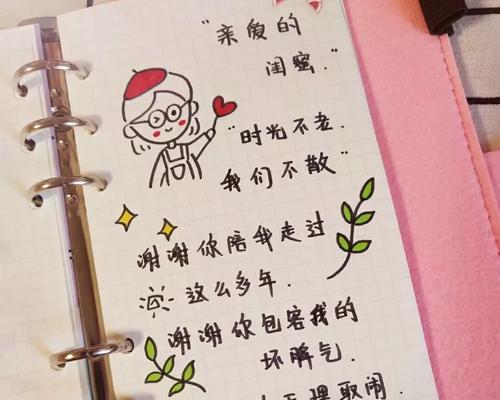 "亲爱的
闺蜜."
"时光不老.
我们不散"
谢谢你陪我走过
这么多年.
谢谢你包容我的
坏脾气.
理取闹.